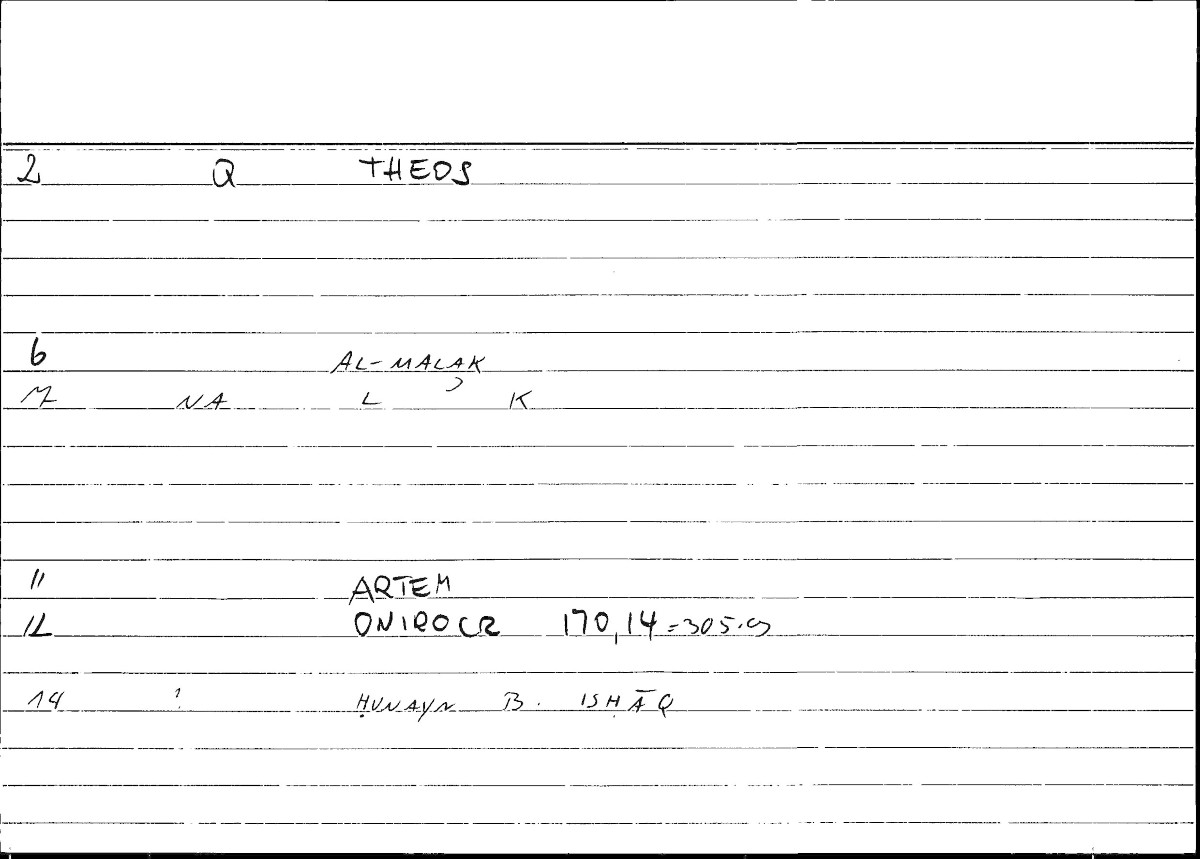 2 Q THEOS
6 AL-MALAK
7 NA L ʾ K
11 ARTEM
12 ONIROCR 170,14 = 305.9
14 ? ḤUNAYN B. ISḤĀQ